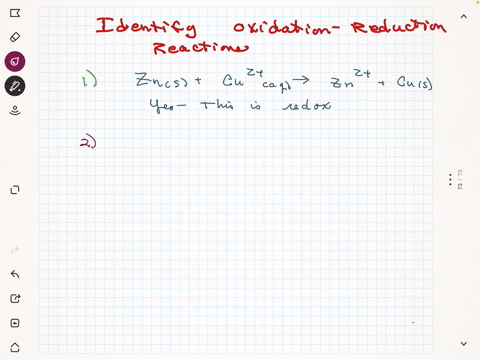 Identify Oxidation-Reduction
Reactions
1.) Zn(s) + Cu²⁺(aq) → Zn²⁺ + Cu(s)
Yes- This is redox
2.)
73 / 73